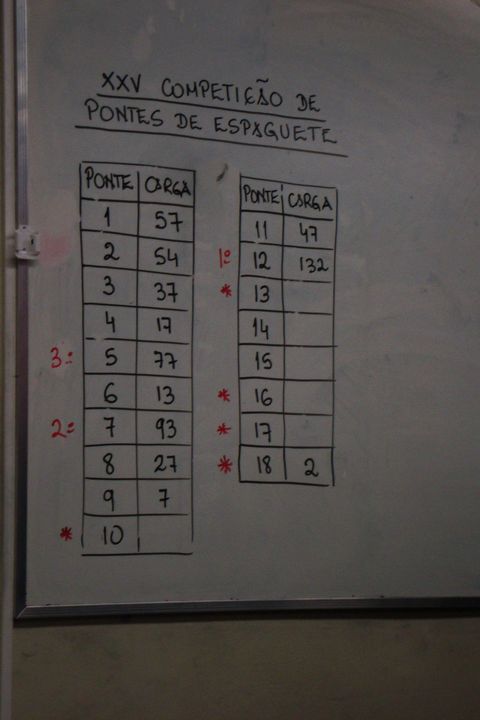 XXV COMPETIÇÃO DE
PONTES DE ESPAGUETE
PONTE CARGA
1 57
2 54
3 37
4 17
3º 5 77
6 13
2º 7 93
8 27
9 7
* 10
PONTE CARGA
11 47
1º 12 132
* 13
14
15
* 16
* 17
* 18 2